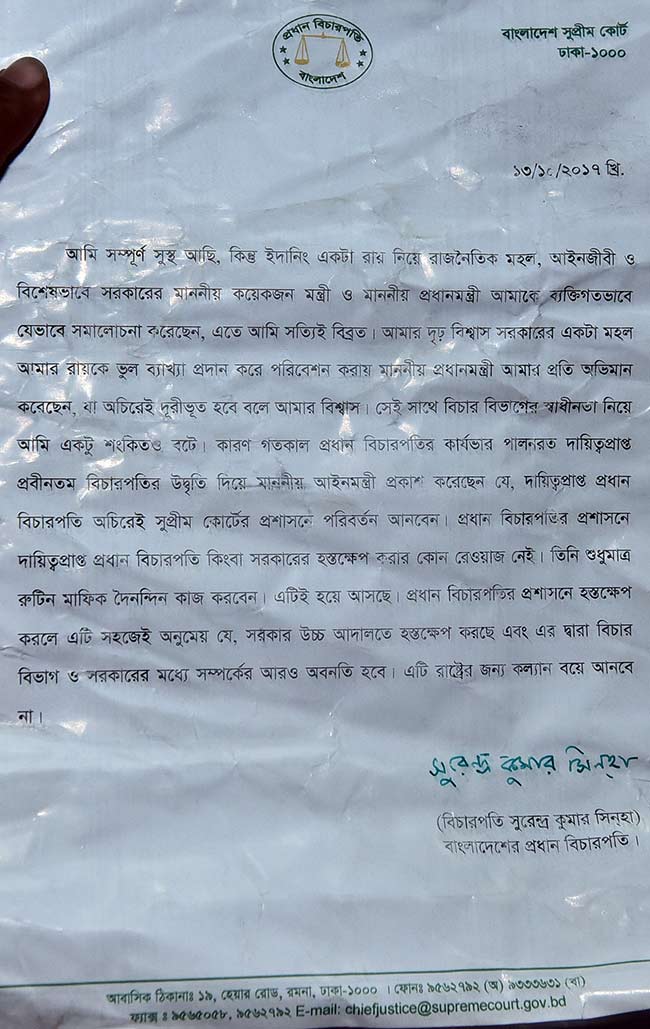 প্রধান বিচারপতি
বাংলাদেশ
বাংলাদেশ সুপ্রীম কোর্ট
ঢাকা-১০০০
১৩/১০/২০১৭ খ্রি.
আমি সম্পূর্ণ সুস্থ আছি, কিন্তু ইদানিং একটা রায় নিয়ে রাজনৈতিক মহল, আইনজীবী ও
বিশেষভাবে সরকারের মাননীয় কয়েকজন মন্ত্রী ও মাননীয় প্রধানমন্ত্রী আমাকে ব্যক্তিগতভাবে
যেভাবে সমালোচনা করেছেন, এতে আমি সত্যিই বিব্রত। আমার দৃঢ় বিশ্বাস সরকারের একটা মহল
আমার রায়কে ভুল ব্যাখ্যা প্রদান করে পরিবেশন করায় মাননীয় প্রধানমন্ত্রী আমার প্রতি অভিমান
করেছেন, যা অচিরেই দূরীভূত হবে বলে আমার বিশ্বাস। সেই সাথে বিচার বিভাগের স্বাধীনতা নিয়ে
আমি একটু শংকিতও বটে। কারণ গতকাল প্রধান বিচারপতির কার্যভার পালনরত দায়িত্বপ্রাপ্ত
প্রবীনতম বিচারপতির উদ্বৃতি দিয়ে মাননীয় আইনমন্ত্রী প্রকাশ করেছেন যে, দায়িত্বপ্রাপ্ত প্রধান
বিচারপতি অচিরেই সুপ্রীম কোর্টের প্রশাসনে পরিবর্তন আনবেন। প্রধান বিচারপতির প্রশাসনে
দায়িত্বপ্রাপ্ত প্রধান বিচারপতি কিংবা সরকারের হস্তক্ষেপ করার কোন রেওয়াজ নেই। তিনি শুধুমাত্র
রুটিন মাফিক দৈনন্দিন কাজ করবেন। এটিই হয়ে আসছে। প্রধান বিচারপতির প্রশাসনে হস্তক্ষেপ
করলে এটি সহজেই অনুমেয় যে, সরকার উচ্চ আদালতে হস্তক্ষেপ করছে এবং এর দ্বারা বিচার
বিভাগ ও সরকারের মধ্যে সম্পর্কের আরও অবনতি হবে। এটি রাষ্ট্রের জন্য কল্যান বয়ে আনবে
না।
সুরেন্দ্র কুমার সিনহা
(বিচারপতি সুরেন্দ্র কুমার সিনহা)
বাংলাদেশের প্রধান বিচারপতি।
আবাসিক ঠিকানাঃ ১৯, হেয়ার রোড, রমনা, ঢাকা-১০০০ । ফোনঃ ৯৫৬২৭৯২ (অ) ৯৩৩৩৬৩১ (বা)
ফ্যাক্স ঃ ৯৫৬৫০৫৮, ৯৫৬২৭৯২ E-mail: chiefjustice@supremecourt.gov.bd